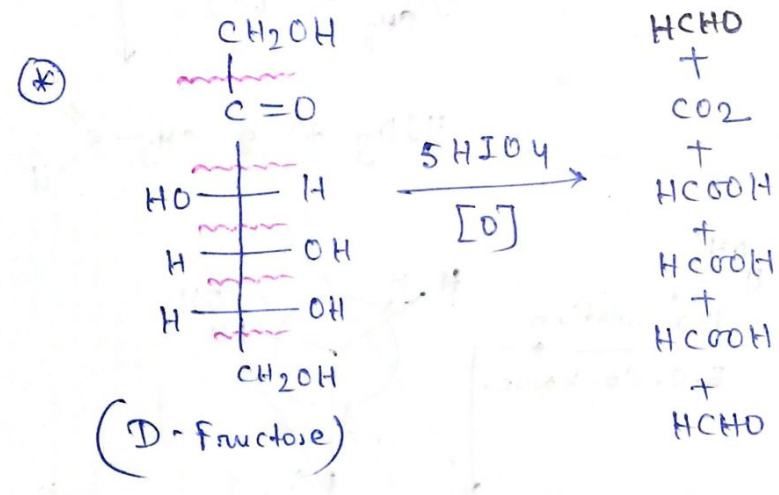 *
CH2OH
C=O
HO H
H OH
H OH
CH2OH
(D-Fructose)
5HIO4
[O]
HCHO
+
CO2
+
HCOOH
+
HCOOH
+
HCOOH
+
HCHO